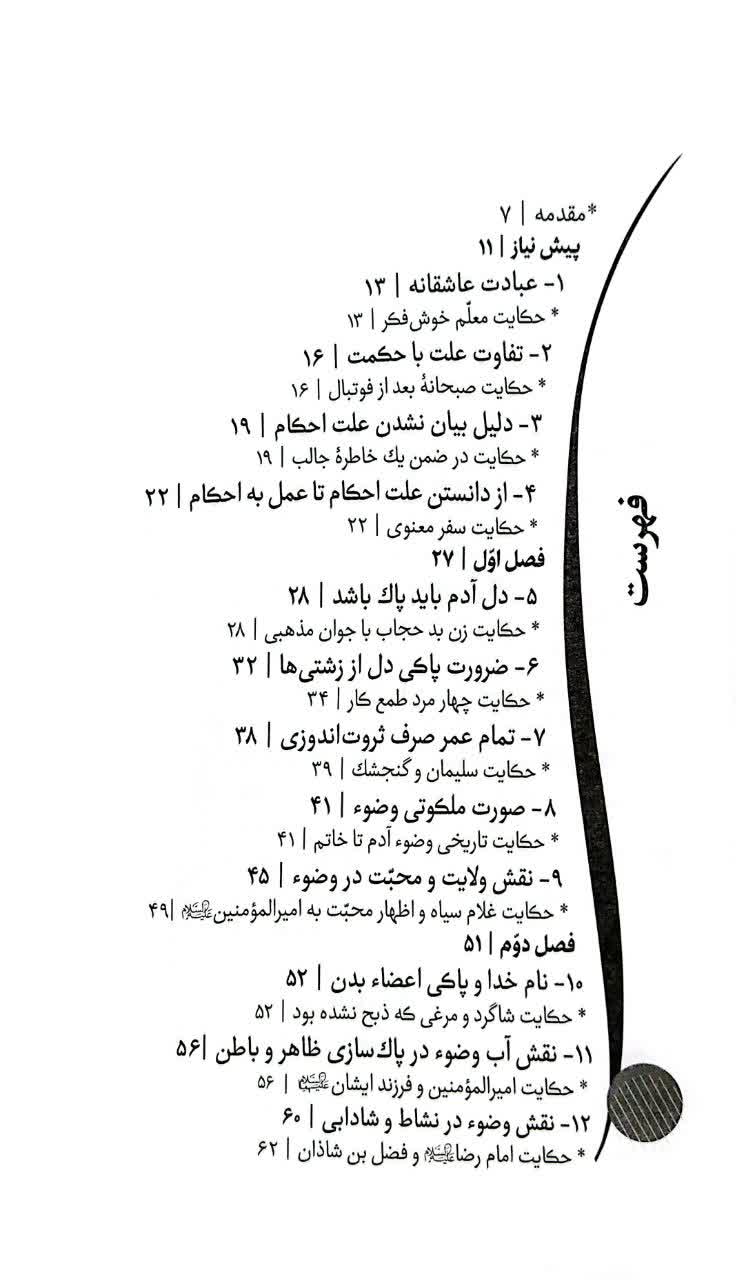 فهرست
*مقدمه | ۷
پیش نیاز | ۱۱
۱- عبادت عاشقانه | ۱۳
* حکایت معلّم خوش‌فکر | ۱۳
۲- تفاوت علت با حکمت | ۱۶
* حکایت صبحانهٔ بعد از فوتبال | ۱۶
۳- دلیل بیان نشدن علت احکام | ۱۹
* حکایت در ضمن یك خاطرهٔ جالب | ۱۹
۴- از دانستن علت احکام تا عمل به احکام | ۲۲
* حکایت سفر معنوی | ۲۲
فصل اوّل | ۲۷
۵- دل آدم باید پاك باشد | ۲۸
* حکایت زن بد حجاب با جوان مذهبی | ۲۸
۶- ضرورت پاکی دل از زشتی‌ها | ۳۲
* حکایت چهار مرد طمع کار | ۳۴
۷- تمام عمر صرف ثروت‌اندوزی | ۳۸
* حکایت سلیمان و گنجشك | ۳۹
۸- صورت ملکوتی وضوء | ۴۱
* حکایت تاریخی وضوء آدم تا خاتم | ۴۱
۹- نقش ولایت و محبّت در وضوء | ۴۵
* حکایت غلام سیاه و اظهار محبّت به امیرالمؤمنین علیه‌السلام | ۴۹
فصل دوّم | ۵۱
۱۰- نام خدا و پاکی اعضاء بدن | ۵۲
* حکایت شاگرد و مرغی که ذبح نشده بود | ۵۲
۱۱- نقش آب وضوء در پاك‌سازی ظاهر و باطن | ۵۶
* حکایت امیرالمؤمنین و فرزند ایشان علیه‌السلام | ۵۶
۱۲- نقش وضوء در نشاط و شادابی | ۶۰
* حکایت امام رضا علیه‌السلام و فضل بن شاذان | ۶۲